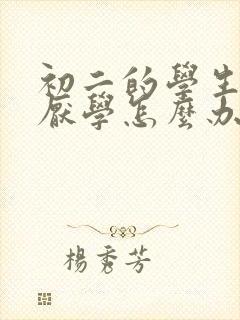 初二的學生
厭學怎麼办
楊秀芳